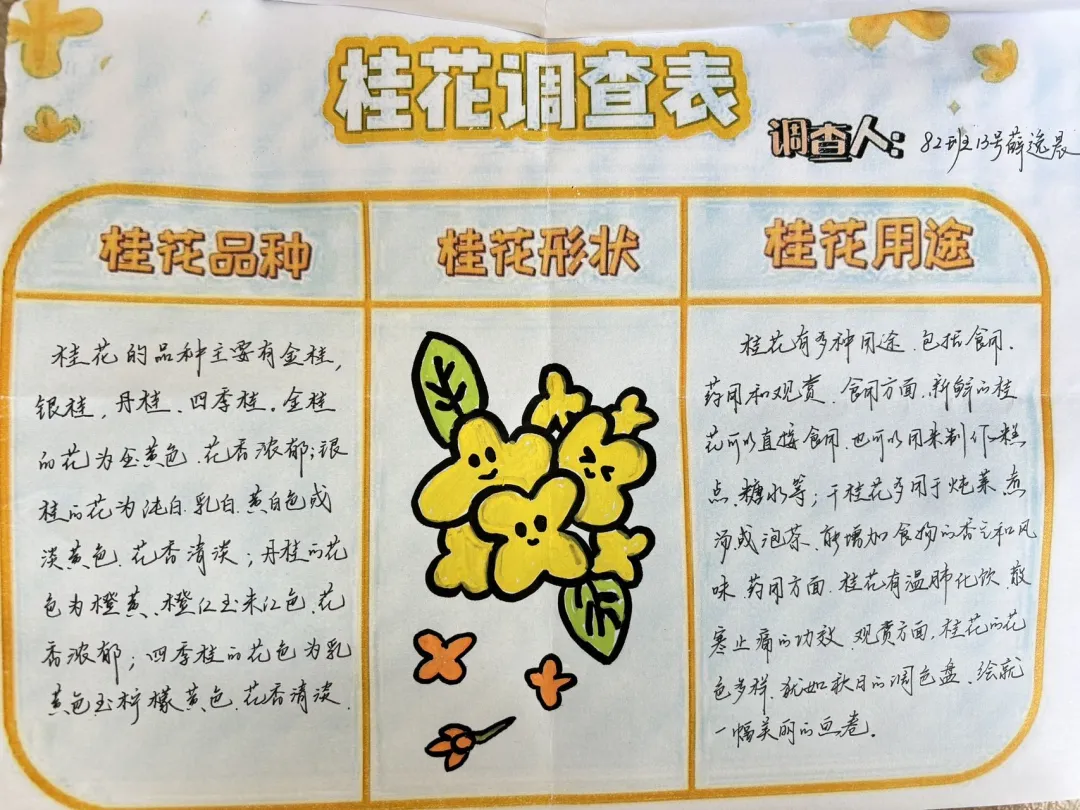 桂花调查表
调查人：82班13号薛逸晨
桂花品种
桂花的品种主要有金桂，
银桂，丹桂、四季桂。金桂
的花为金黄色、花香浓郁；银
桂的花为纯白、乳白、黄白色或
淡黄色、花香清淡；丹桂的花
色为橙黄、橙红至朱红色、花
香浓郁；四季桂的花色为乳
黄色至柠檬黄色、花香清淡.
桂花形状
桂花用途
桂花有多种用途、包括食用、
药用和观赏、食用方面、新鲜的桂
花可以直接食用、也可以用来制作糕
点、糖水等；干桂花多用于炖菜、煮
汤或泡茶、能增加食物的香气和风
味、药用方面、桂花有温肺化饮、散
寒止痛的功效、观赏方面，桂花的花
色多样、犹如秋日的调色盘、绘就
一幅美丽的画卷。